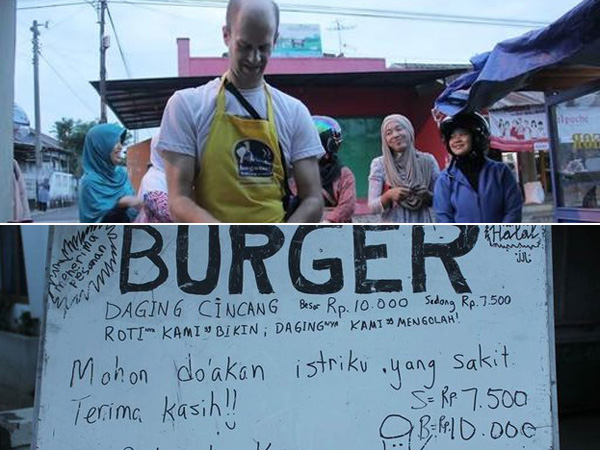 menerima
pesanan
BURGER
Halal
DAGING CINCANG Besar Rp.10.000 Sedang Rp.7.500
ROTInya KAMI YG BIKIN ; DAGINGnya KAMI YG MENGOLAH!
Mohon do'akan istriku yang sakit.
Terima kasih!!
S= Rp 7.500
B= Rp. 10.000